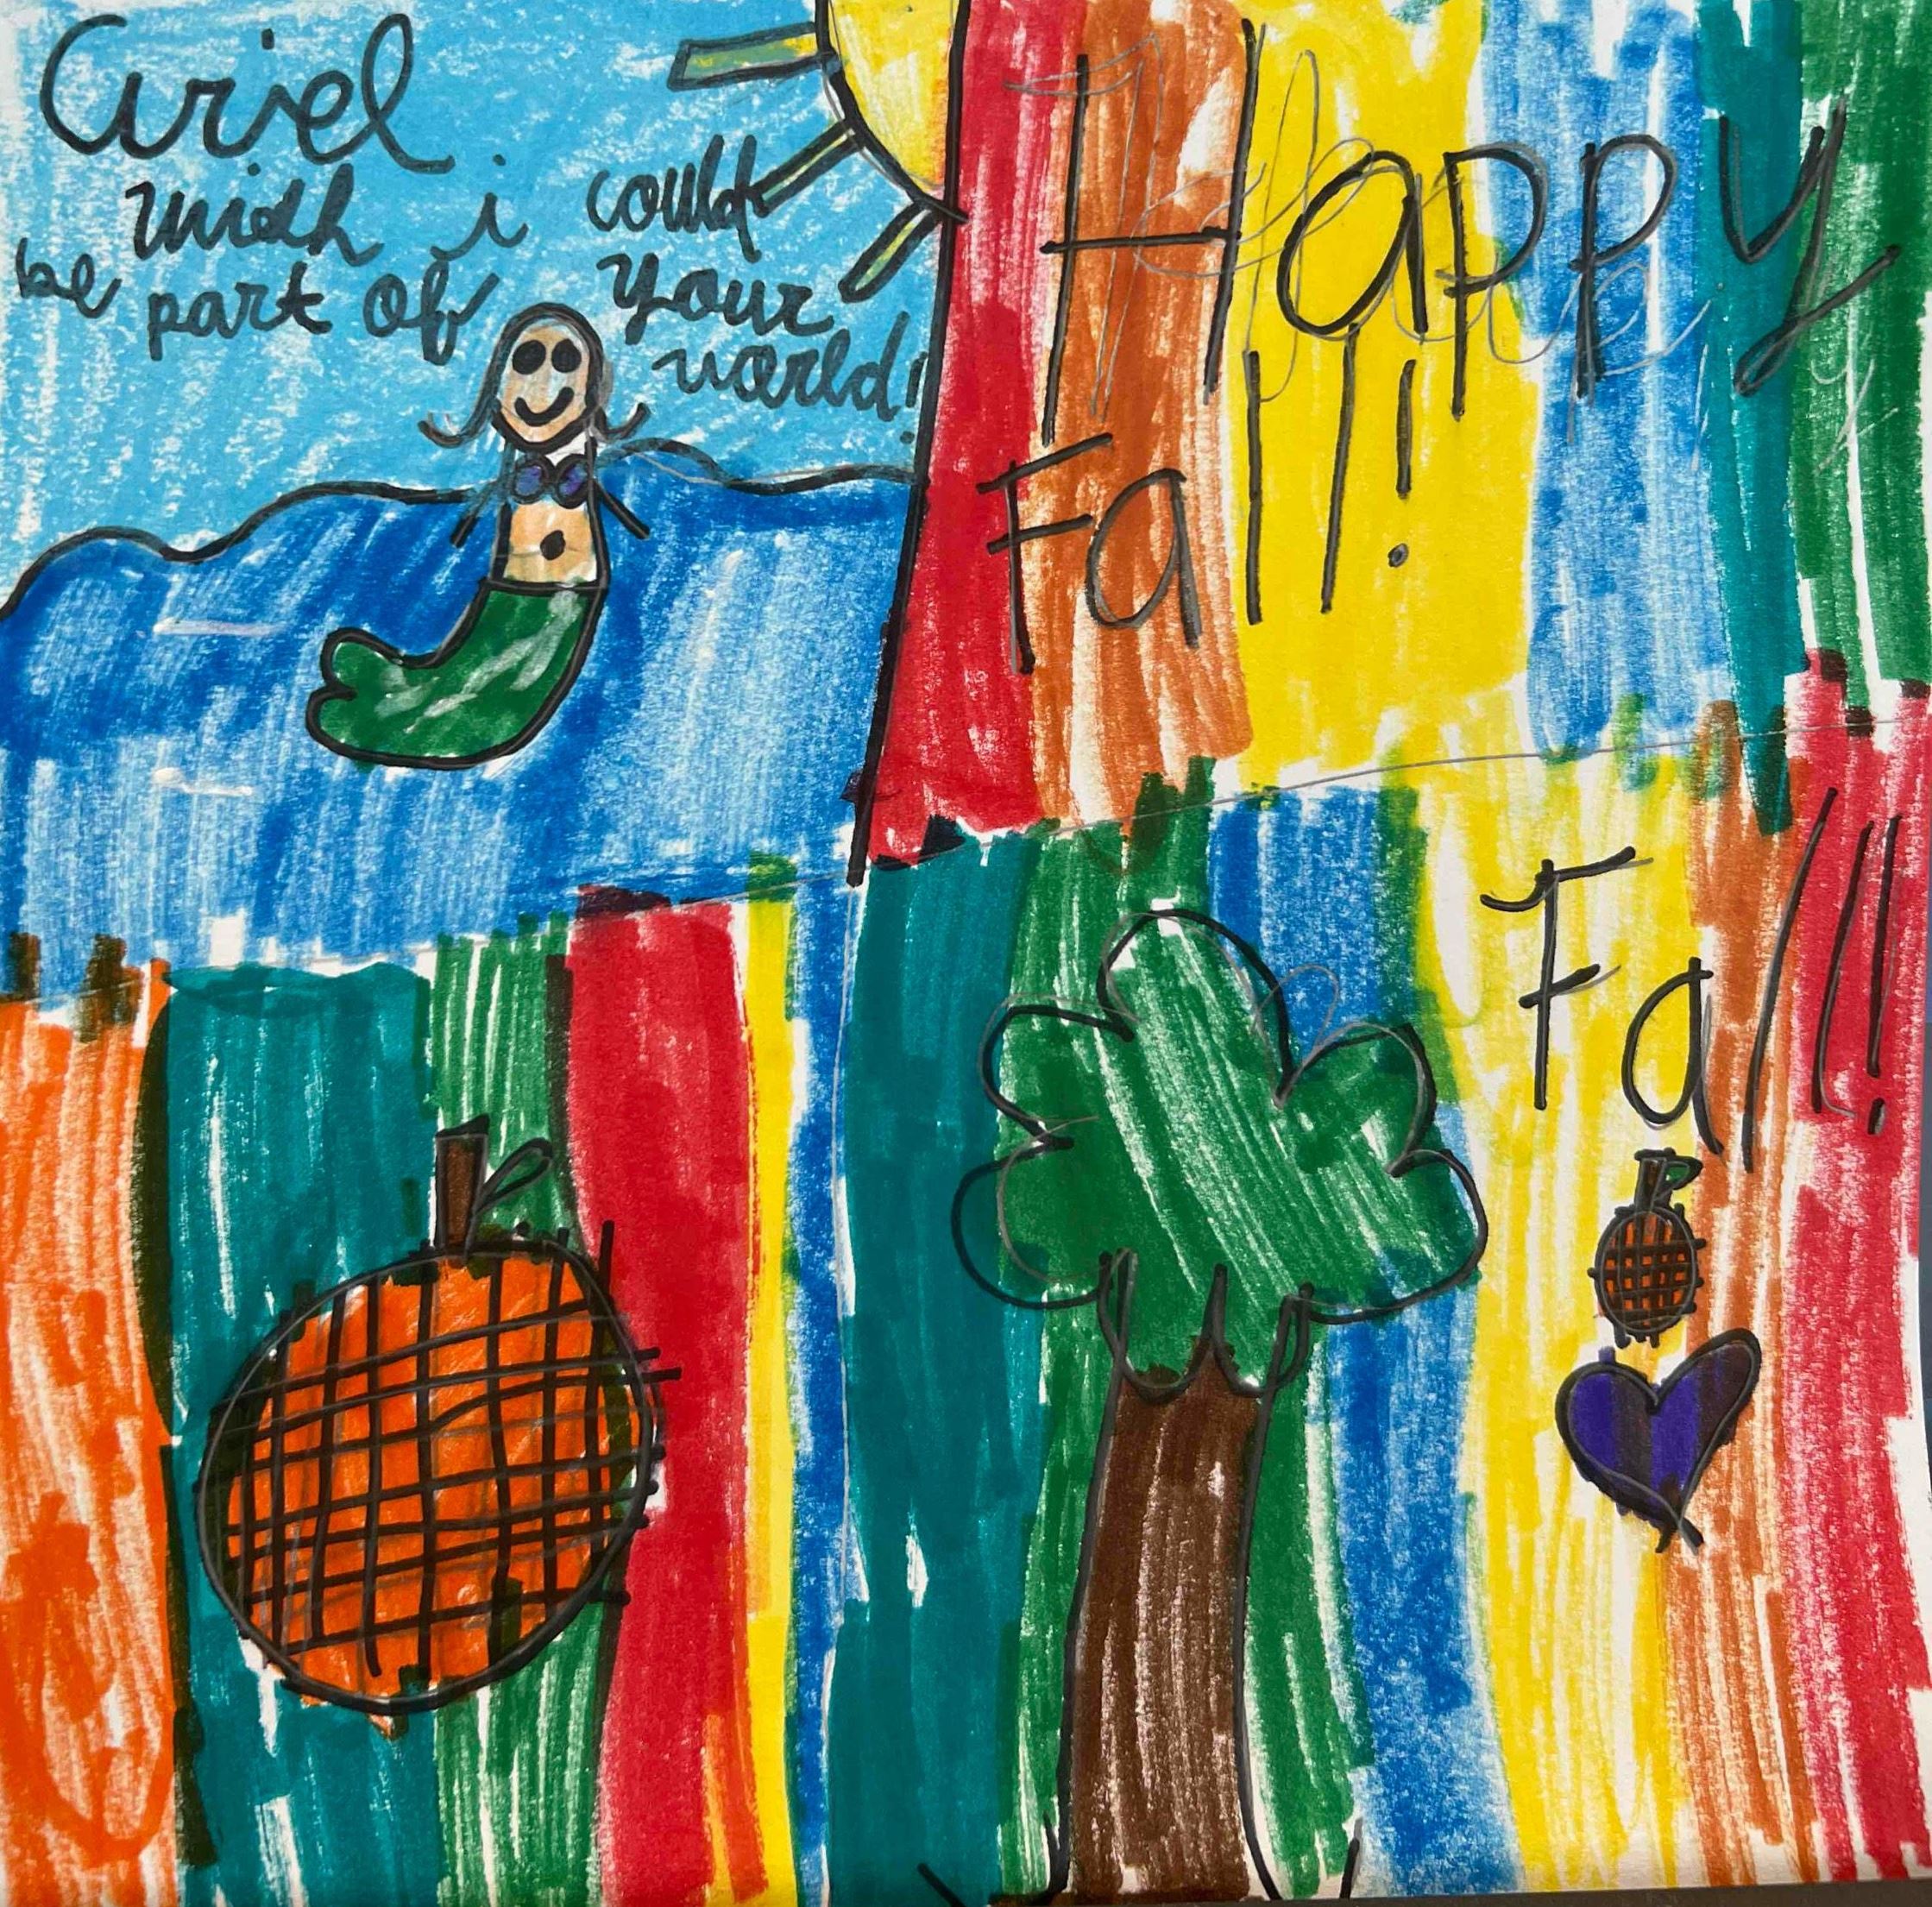 Ariel
wish i could
be part of your
world!
Happy
Fall!
Fall!